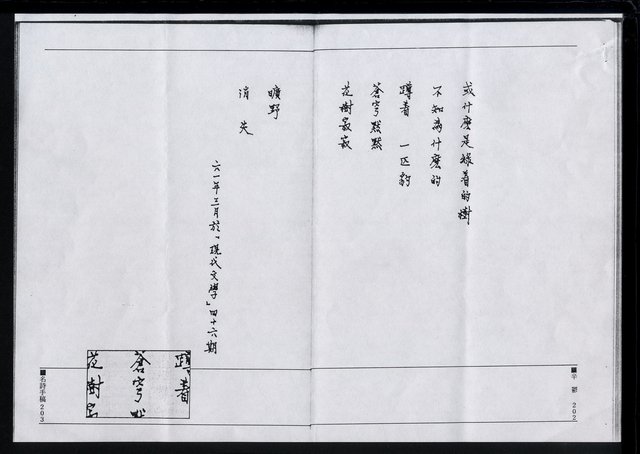 或什麼是綠着的樹
不知為什麼的
蹲着 一匹豹
蒼穹默默
花樹寂寂
曠野
消失
六一年三月於「現代文學」四十六期
蹲着
蒼穹
花樹
■辛鬱 202
■名詩手稿 203